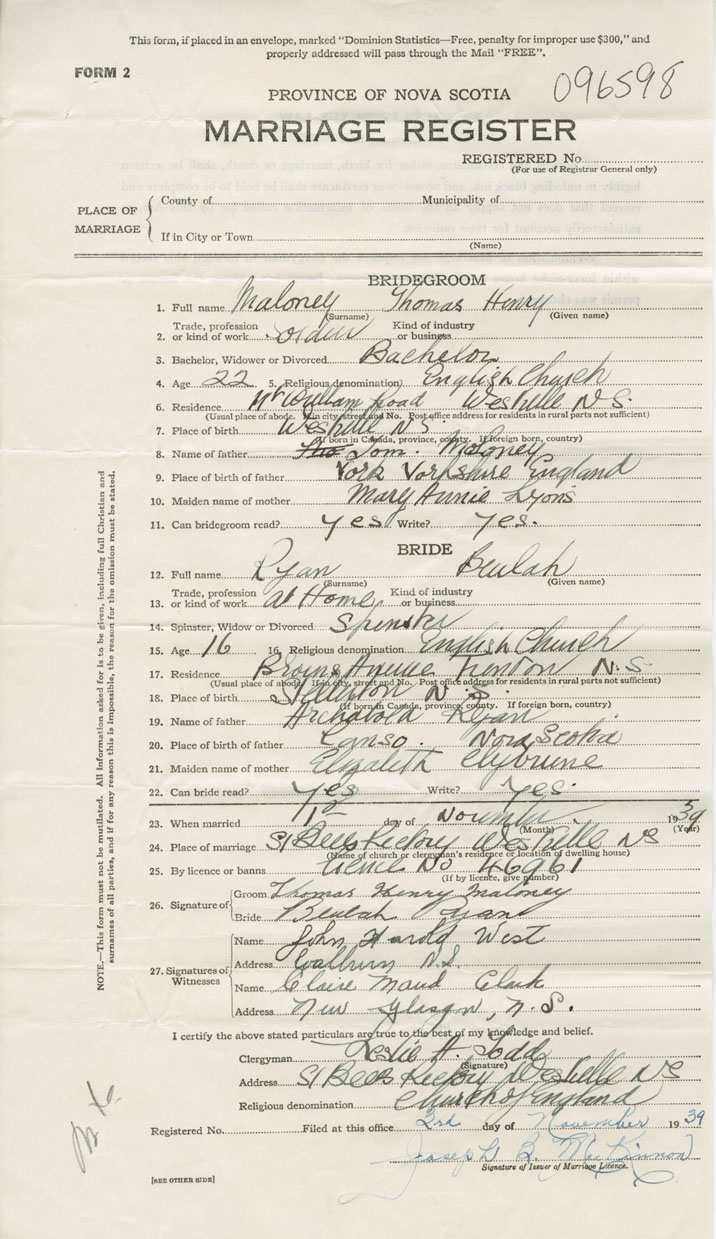 This form, if placed in an envelope, marked "Dominion Statistics—Free, penalty for improper use $300," and
properly addressed will pass through the Mail "FREE".
FORM 2
096598
PROVINCE OF NOVA SCOTIA
MARRIAGE REGISTER
REGISTERED No.
(For use of Registrar General only)
PLACE OF MARRIAGE
County of Municipality of
If in City or Town
(Name)
BRIDEGROOM
1. Full name Maloney Thomas Henry
(Surname) (Given name)
2. Trade, profession or kind of work Kind of industry or business
3. Bachelor, Widower or Divorced Bachelor
4. Age 22 5. Religious denomination English Church
6. Residence Road Westville N.S.
(Usual place of abode. If in city, street and No. Post office address for residents in rural parts not sufficient)
7. Place of birth Westville N.S.
(If born in Canada, province, county. If foreign born, country)
8. Name of father Tom. Maloney
9. Place of birth of father York Yorkshire England
10. Maiden name of mother Mary Annie Lyons
11. Can bridegroom read? yes Write? yes.
BRIDE
12. Full name Ryan Beulah
(Surname) (Given name)
13. Trade, profession or kind of work at Home Kind of industry or business
14. Spinster, Widow or Divorced Spinster
15. Age 16 16. Religious denomination English Church
17. Residence Trenton N.S.
(Usual place of abode. If in city, street and No. Post office address for residents in rural parts not sufficient)
18. Place of birth Stellarton N.S.
(If born in Canada, province, county. If foreign born, country)
19. Name of father Archabold Ryan
20. Place of birth of father Canso. Nova Scotia
21. Maiden name of mother Elizabeth
22. Can bride read? yes Write? yes.
23. When married 1st day of November 1939
(Month) (Year)
24. Place of marriage St Bees Rectory Westville NS
(Name of church or clergyman's residence or location of dwelling house)
25. By licence or banns Licence No 46961
(If by licence, give number)
26. Signature of
Groom Thomas Henry Maloney
Bride Beulah Ryan
27. Signatures of Witnesses
Name John Harold West
Address N.S.
Name Claire Maud Clark
Address New Glasgow, N.S.
I certify the above stated particulars are true to the best of my knowledge and belief.
Clergyman Leslie A. Todd
(Signature)
Address St Bees Rectory Westville NS
Religious denomination Church of England
Registered No. Filed at this office 2nd day of November 1939
Joseph B. MacKinnon
Signature of Issuer of Marriage Licence.
[SEE OTHER SIDE]
NOTE.—This form must not be mutilated. All information asked for is to be given, including full Christian and
surnames of all parties, and if for any reason this is impossible, the reason for the omission must be stated.